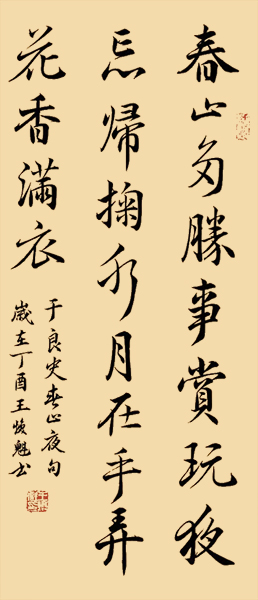 春山多勝事賞玩夜
忘歸掬水月在手弄
花香滿衣
于良史春山夜句
歲在丁酉王魁书